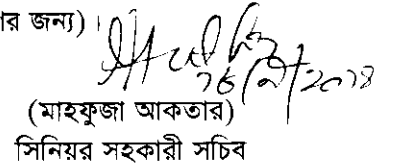 র জন্য) ।
(মাহফুজা আকতার)
সিনিয়র সহকারী সচিব